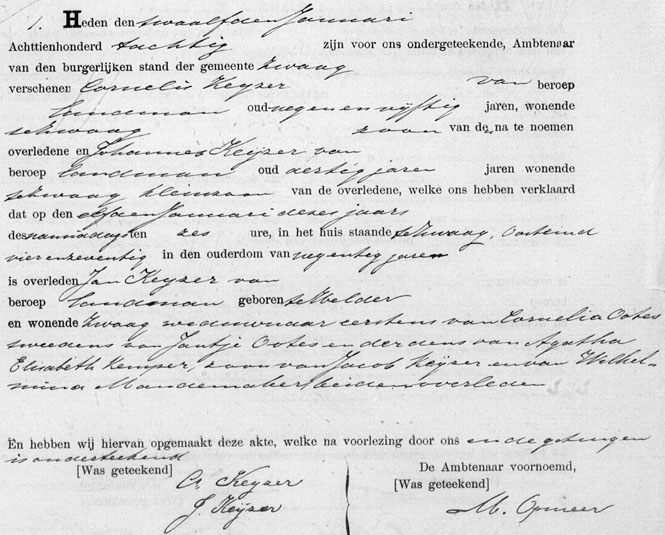 1. Heden den twaalfden Januari
Achttienhonderd tachtig zijn voor ons ondergeteekende, Ambtenaar
van den burgerlijken stand der gemeente Zwaag
verschenen Cornelis Keyzer van beroep
landman oud negen en vijftig jaren, wonende
te Zwaag zoon van de na te noemen
overledene en Johannes Keijzer van
beroep landman oud dertig jaren jaren wonende
te Zwaag kleinzoon van de overledene, welke ons hebben verklaard
dat op den elfden Januari dezes jaars
des namiddags ten zes ure, in het huis staande te Zwaag, Oosteind
vier en zeventig in den ouderdom van negentig jaren
is overleden Jan Keyzer van
beroep landman geboren te Welder
en wonende Zwaag weduwnaar eerstens van Cornelia Ootes
tweedens van Jantje Ootes en derdens van Agatha
Elisabeth Kemper, zoon van Jacob Keijzer en van Wilhel-
mina Mandemaker, beiden overleden
En hebben wij hiervan opgemaakt deze akte, welke na voorlezing door ons en de getuigen
is onderteekend
[Was geteekend]
Cs Keyzer
J. Keijzer
De Ambtenaar voornoemd,
[Was geteekend]
M. Opmeer